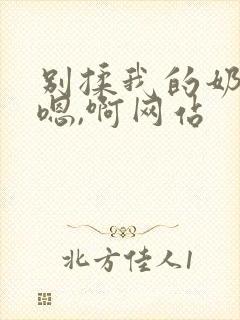 别揉我的奶
嗯,啊网估
北方佳人1